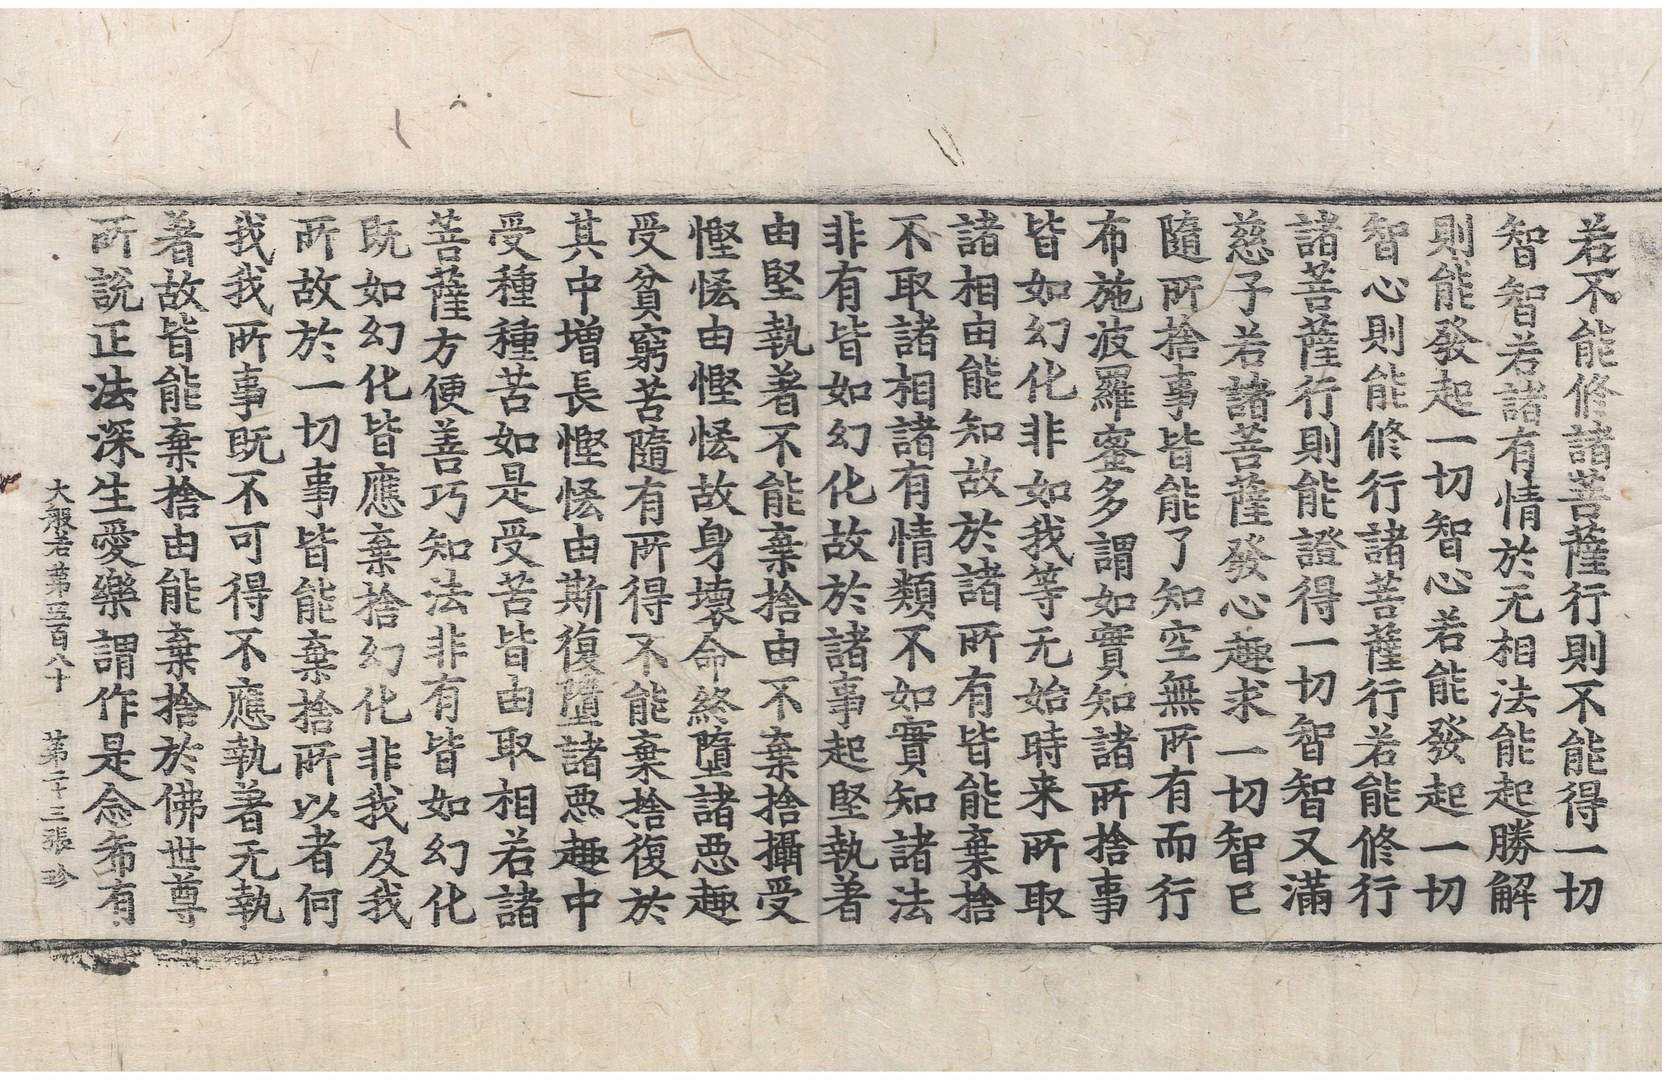 若不能修諸菩薩行則不能得一切
智智若諸有情於无相法能起勝解
則能發起一切智心若能發起一切
智心則能修行諸菩薩行若能修行
諸菩薩行則能證得一切智智又滿
慈子若諸菩薩發心趣求一切智已
隨所捨事皆能了知空無所有而行
布施波羅蜜多謂如實知諸所捨事
皆如幻化非如我等无始時来所取
諸相由能知故於諸所有皆能棄捨
不取諸相諸有情類不如實知諸法
非有皆如幻化故於諸事起堅執著
由堅執著不能棄捨由不棄捨攝受
慳悋由慳悋故身壞命終墮諸惡趣
受貧窮苦隨有所得不能棄捨復於
其中增長慳悋由斯復墮諸惡趣中
受種種苦如是受苦皆由取相若諸
菩薩方便善巧知法非有皆如幻化
既如幻化皆應棄捨幻化非我及我
所故於一切事皆能棄捨所以者何
我我所事既不可得不應執著无執
著故皆能棄捨由能棄捨於佛世尊
所說正法深生愛樂謂作是念希有
大般若第五百八十　第二十三張　珍